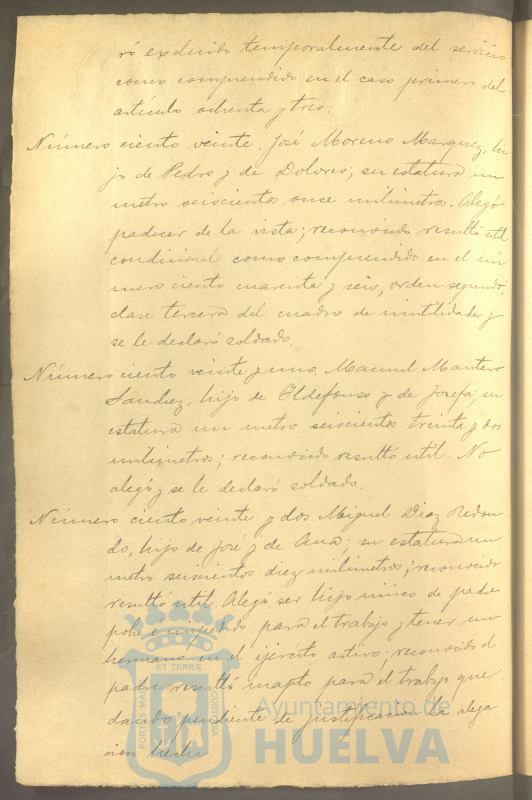 ró excluido temporalmente del servicio
como comprendido en el caso primero del
artículo ochenta y tres.
Número ciento veinte. José Moreno Marquez, hi
jo de Pedro y de Dolores; su estatura un
metro seiscientos once milimetros. Alegó
padecer de la vista; reconocido resultó útil
condicional como comprendido en el nú
mero ciento cuarenta y seis, orden segundo,
clase tercera del cuadro de inutilidades y
se le declaró soldado.
Número ciento veinte y uno. Manuel Mantero
Sanchez, hijo de Yldefonso y de Josefa; su
estatura un metro seiscientos treinta y dos
milimetros; reconocido resultó util. No
alegó y se le declaró soldado.
Número ciento veinte y dos Miguel Diaz Redon
do, hijo de José y de Ana; su estatura un
metro seiscientos diez milimetros; reconocido
resultó util. Alegó ser hijo único de padre
pobre é impedido para el trabajo y tener un
hermano en el ejército activo; reconocido el
padre resultó inapto para el trabajo que
dando pendiente de justificacion la alega
cion hecha
PORTUS MARIS ET TERRÆ CUSTODIA
Ayuntamiento de
HUELVA